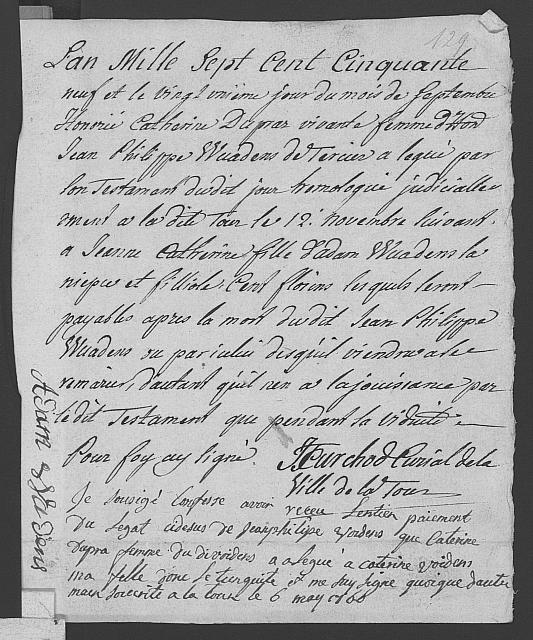 129
L'an Mille Sept Cent Cinquante
neuf et le vingt unieme jour du mois de Septembre
Honorée Catherine Dupraz vivante femme d'Hon
Jean Philippe Wuadens de Tercier a legué par
son Testament dudit jour homologué judicialle
ment a la dite Tour le 12. Novembre suivant
a Jeanne Catherine fille d'adam Wuadens sa
niepce et filliole, Cent florins lesquels seront
payables apres la mort dudit Jean Philippe
Wuadens ou par celui des qu'il viendra a se
remarier, d'autant qu'il n'en a la jouissance par
le dit Testament que pendant sa viduité
Pour foy ay signé. Curial de la
Ville de la Tour
Je sousigé Confesse avoir receu Lentier paiement
du Legat cidesus de Jean philipe voidens que Caterine
Dupra femme du dit voidens a a legué a Caterine voidens
ma fille donc je turquite et me suy signe quoique d'autre
main souscrite a la tour le 6 may
Adam